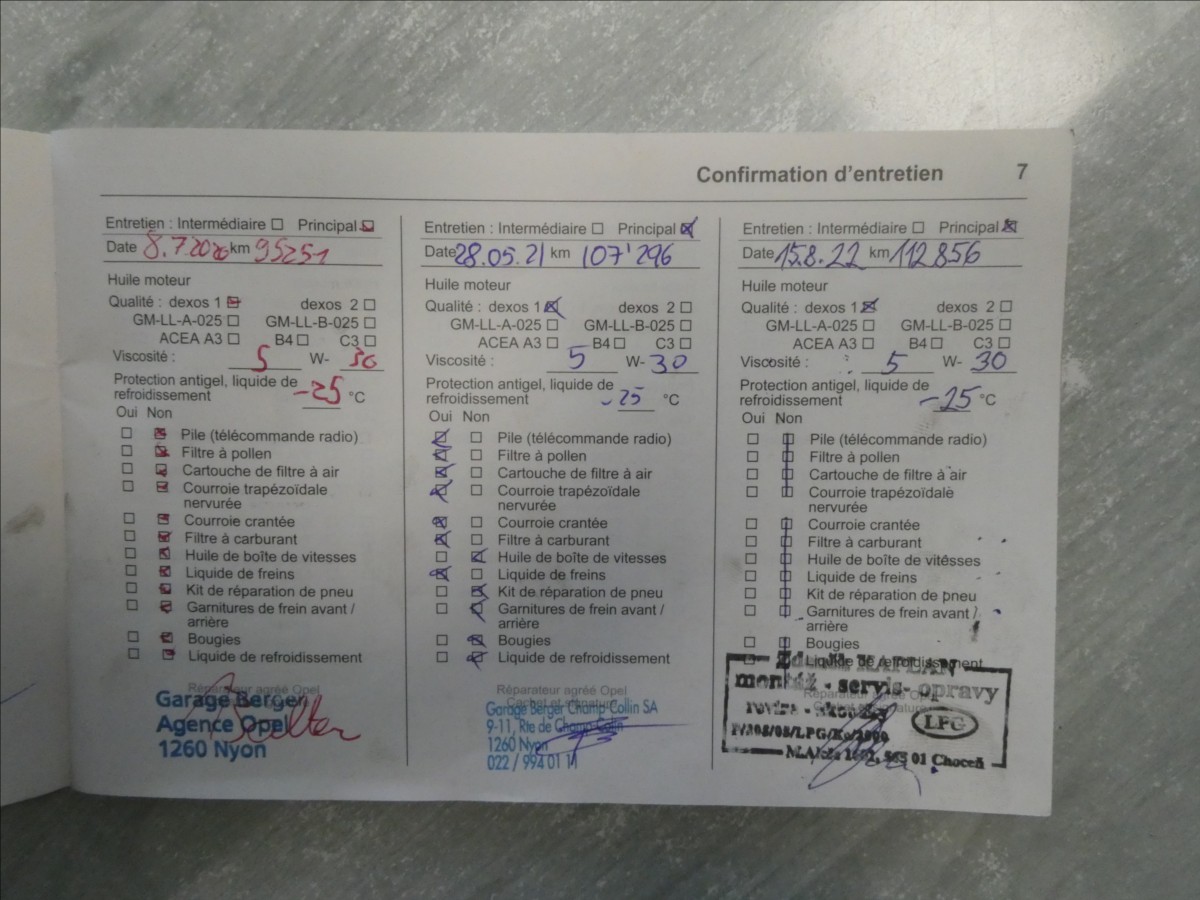 Confirmation d'entretien 7
Entretien : Intermédiaire Principal
Date 8.7.2020 km 95251
Huile moteur
Qualité : dexos 1 dexos 2
GM-LL-A-025 GM-LL-B-025
ACEA A3 B4 C3
Viscosité : 5 W- 30
Protection antigel, liquide de
refroidissement -25 °C
Oui Non
Pile (télécommande radio)
Filtre à pollen
Cartouche de filtre à air
Courroie trapézoïdale
nervurée
Courroie crantée
Filtre à carburant
Huile de boîte de vitesses
Liquide de freins
Kit de réparation de pneu
Garnitures de frein avant /
arrière
Bougies
Liquide de refroidissement
Réparateur agréé Opel
Garage Berger
Agence Opel
1260 Nyon
Entretien : Intermédiaire Principal
Date 28.05.21 km 107'296
Huile moteur
Qualité : dexos 1 dexos 2
GM-LL-A-025 GM-LL-B-025
ACEA A3 B4 C3
Viscosité : 5 W- 30
Protection antigel, liquide de
refroidissement -25 °C
Oui Non
Pile (télécommande radio)
Filtre à pollen
Cartouche de filtre à air
Courroie trapézoïdale
nervurée
Courroie crantée
Filtre à carburant
Huile de boîte de vitesses
Liquide de freins
Kit de réparation de pneu
Garnitures de frein avant /
arrière
Bougies
Liquide de refroidissement
Réparateur agréé Opel
Cachet et signature
Garage Berger Champ Collin SA
9-11, Rte de Champ-Colin
1260 Nyon
022 / 994 01 11
Entretien : Intermédiaire Principal
Date 15.8.22 km 112856
Huile moteur
Qualité : dexos 1 dexos 2
GM-LL-A-025 GM-LL-B-025
ACEA A3 B4 C3
Viscosité : 5 W- 30
Protection antigel, liquide de
refroidissement -25 °C
Oui Non
Pile (télécommande radio)
Filtre à pollen
Cartouche de filtre à air
Courroie trapézoïdale
nervurée
Courroie crantée
Filtre à carburant
Huile de boîte de vitesses
Liquide de freins
Kit de réparation de pneu
Garnitures de frein avant /
arrière
Bougies
Liquide de refroidissement
Réparateur agréé Opel
KAPLAN
montáž - servis- opravy
LPG
01 Choceň